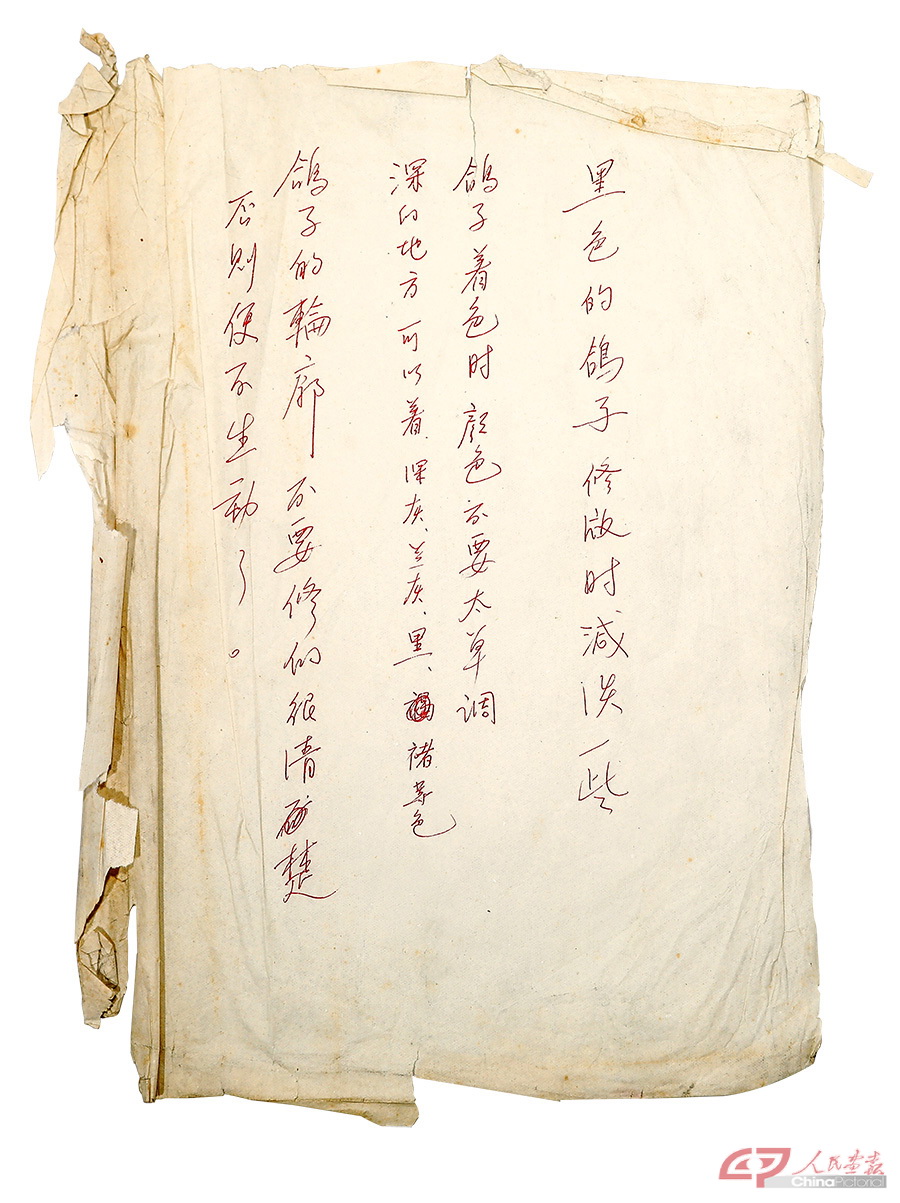 黑色的鴿子修版时减淡一些
鴿子着色时颜色不要太单调
深的地方可以着深灰、兰灰、黑、褚等色
鴿子的輪廓不要修的很清楚
否则便不生动了。
人民画报
China Pictorial